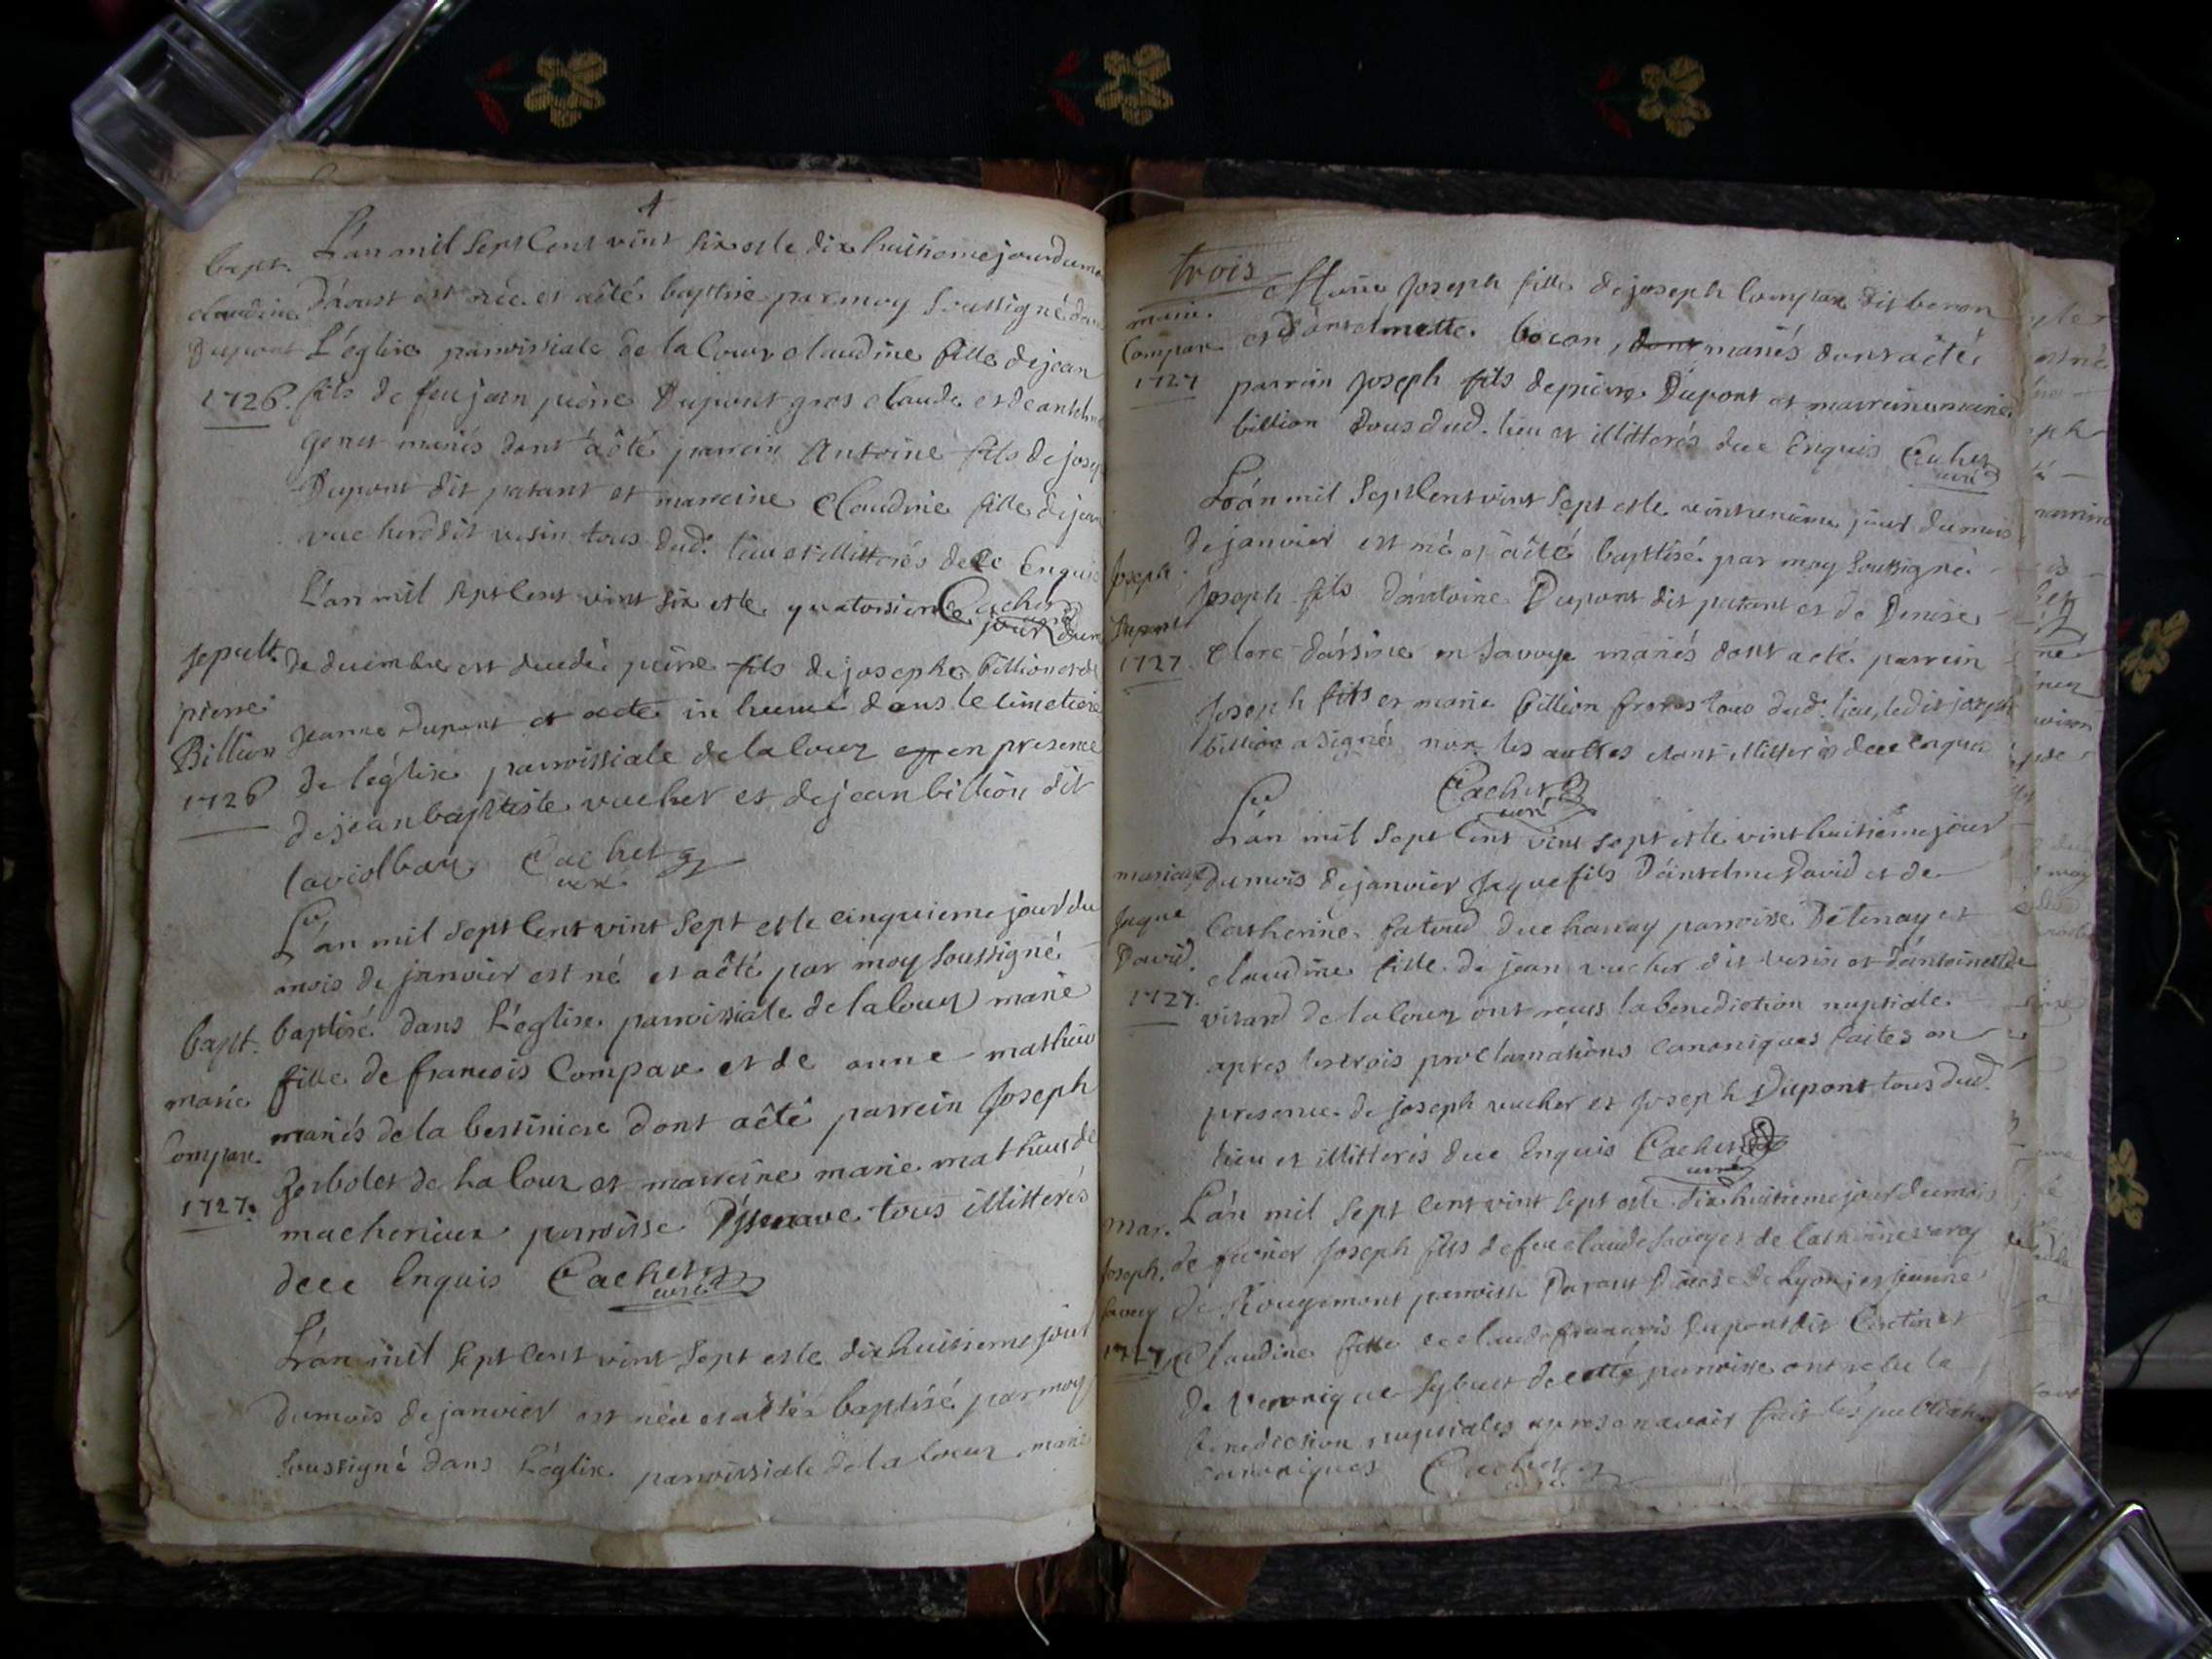 L'an mil sept cent vint six et le dix huitieme jour du mo
bapt.
claudine
Dupont
1726.
D'aoust est née et a êté baptisé par moy soussigné dans
L'église parroissiale de la Coux claudine fille de jean
fils de feu jean pierre Dupont gros claude et de anthelme
genet mariés dont a êté parrein Antoine fils de josep
Dupont dit patant et marreine Claudine fille de jean
vucher dit visin tous dud. lieu et illitterés de ce Enquis
Cachet
curé
L'an mil sept cent vint six et le quatorsieme jour du m
sepult.
pierre
Billion
1726
de decembre est decedé pierre fils de joseph Billion et de
jeanne Dupont et a eté in humé dans le cimetiere
de l'église parroissiale de la Coux en presence
de jean baptiste vucher et de jean billion dit
Cachet
curé
L'an mil sept cent vint sept et le cinquieme jour du
mois de janvier est né et a êté par moy soussigné
bapt.
marie
Compare
1727.
baptisé dans L'eglise parroissiale de la Coux marie
fille de francois Compare et de anne mathieu
mariés de la bertiniere dont a êté parrein Joseph
Gerbolet de la Coux et marreine marie mathieu de
parroisse tous illitterés
de ce Enquis Cachet
curé
L'an mil sept cent vint sept et le dix huitieme jour
du mois de janvier est née et a êtés baptisé par moy
soussigné dans L'église parroissiale de la Coux marie
trois
marie
Compare
1727
Marie Joseph fille de joseph Compare dit beron
et D'antelmette bocon, dont mariés dont a êté
parrein Joseph fils de pierre Dupont et marreine marie
billion tous dud. lieu et illitterés de ce Enquis Cachet
curé
L'an mil sept cent vint sept et le vint unieme jour du mois
Joseph
Dupont
1727
de janvier est né et a êté baptisé par moy soussigné
Joseph fils d'antoine Dupont dit patant et de Denise
Clerc d'arsine en Savoye mariés dont a eté parrein
Joseph fils et marie billion freres tous dud. lieu, ledit joseph
billion a signé non les aultres etant illitterés de ce enquis
Cachet
curé
L'an mil sept cent vint sept et le vint huitieme jour
mariage
Jaque
David.
1727.
du mois de janvier Jaque fils D'antelme David et de
Catherine parroisse et
claudine fille de jean vucher dit visin et d'antoinette
de la Coux ont reçus la benediction nuptiale
apres les trois proclamations canoniques faites en
presence de joseph vucher et Joseph Dupont tous dud.
lieu et illitterés de ce Enquis Cachet
curé
L'an mil sept cent vint sept et le dix huitieme jour du mois
mar.
Joseph
Savey
1727
de fevrier Joseph fils de feu claude Savey et de Catherine
de Rougemont parroisse Diocese de Lyon; et jeanne
Claudine fille de claude francois Dupont dit et
de Veronique de cette parroisse ont recu la
benediction nuptiales apres en avoir fait les publications
canoniques Cachet